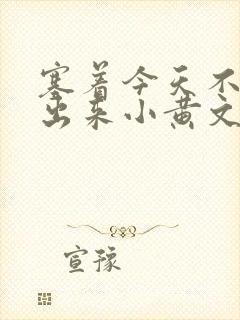 塞着今天不
出来小黄文
宣豫